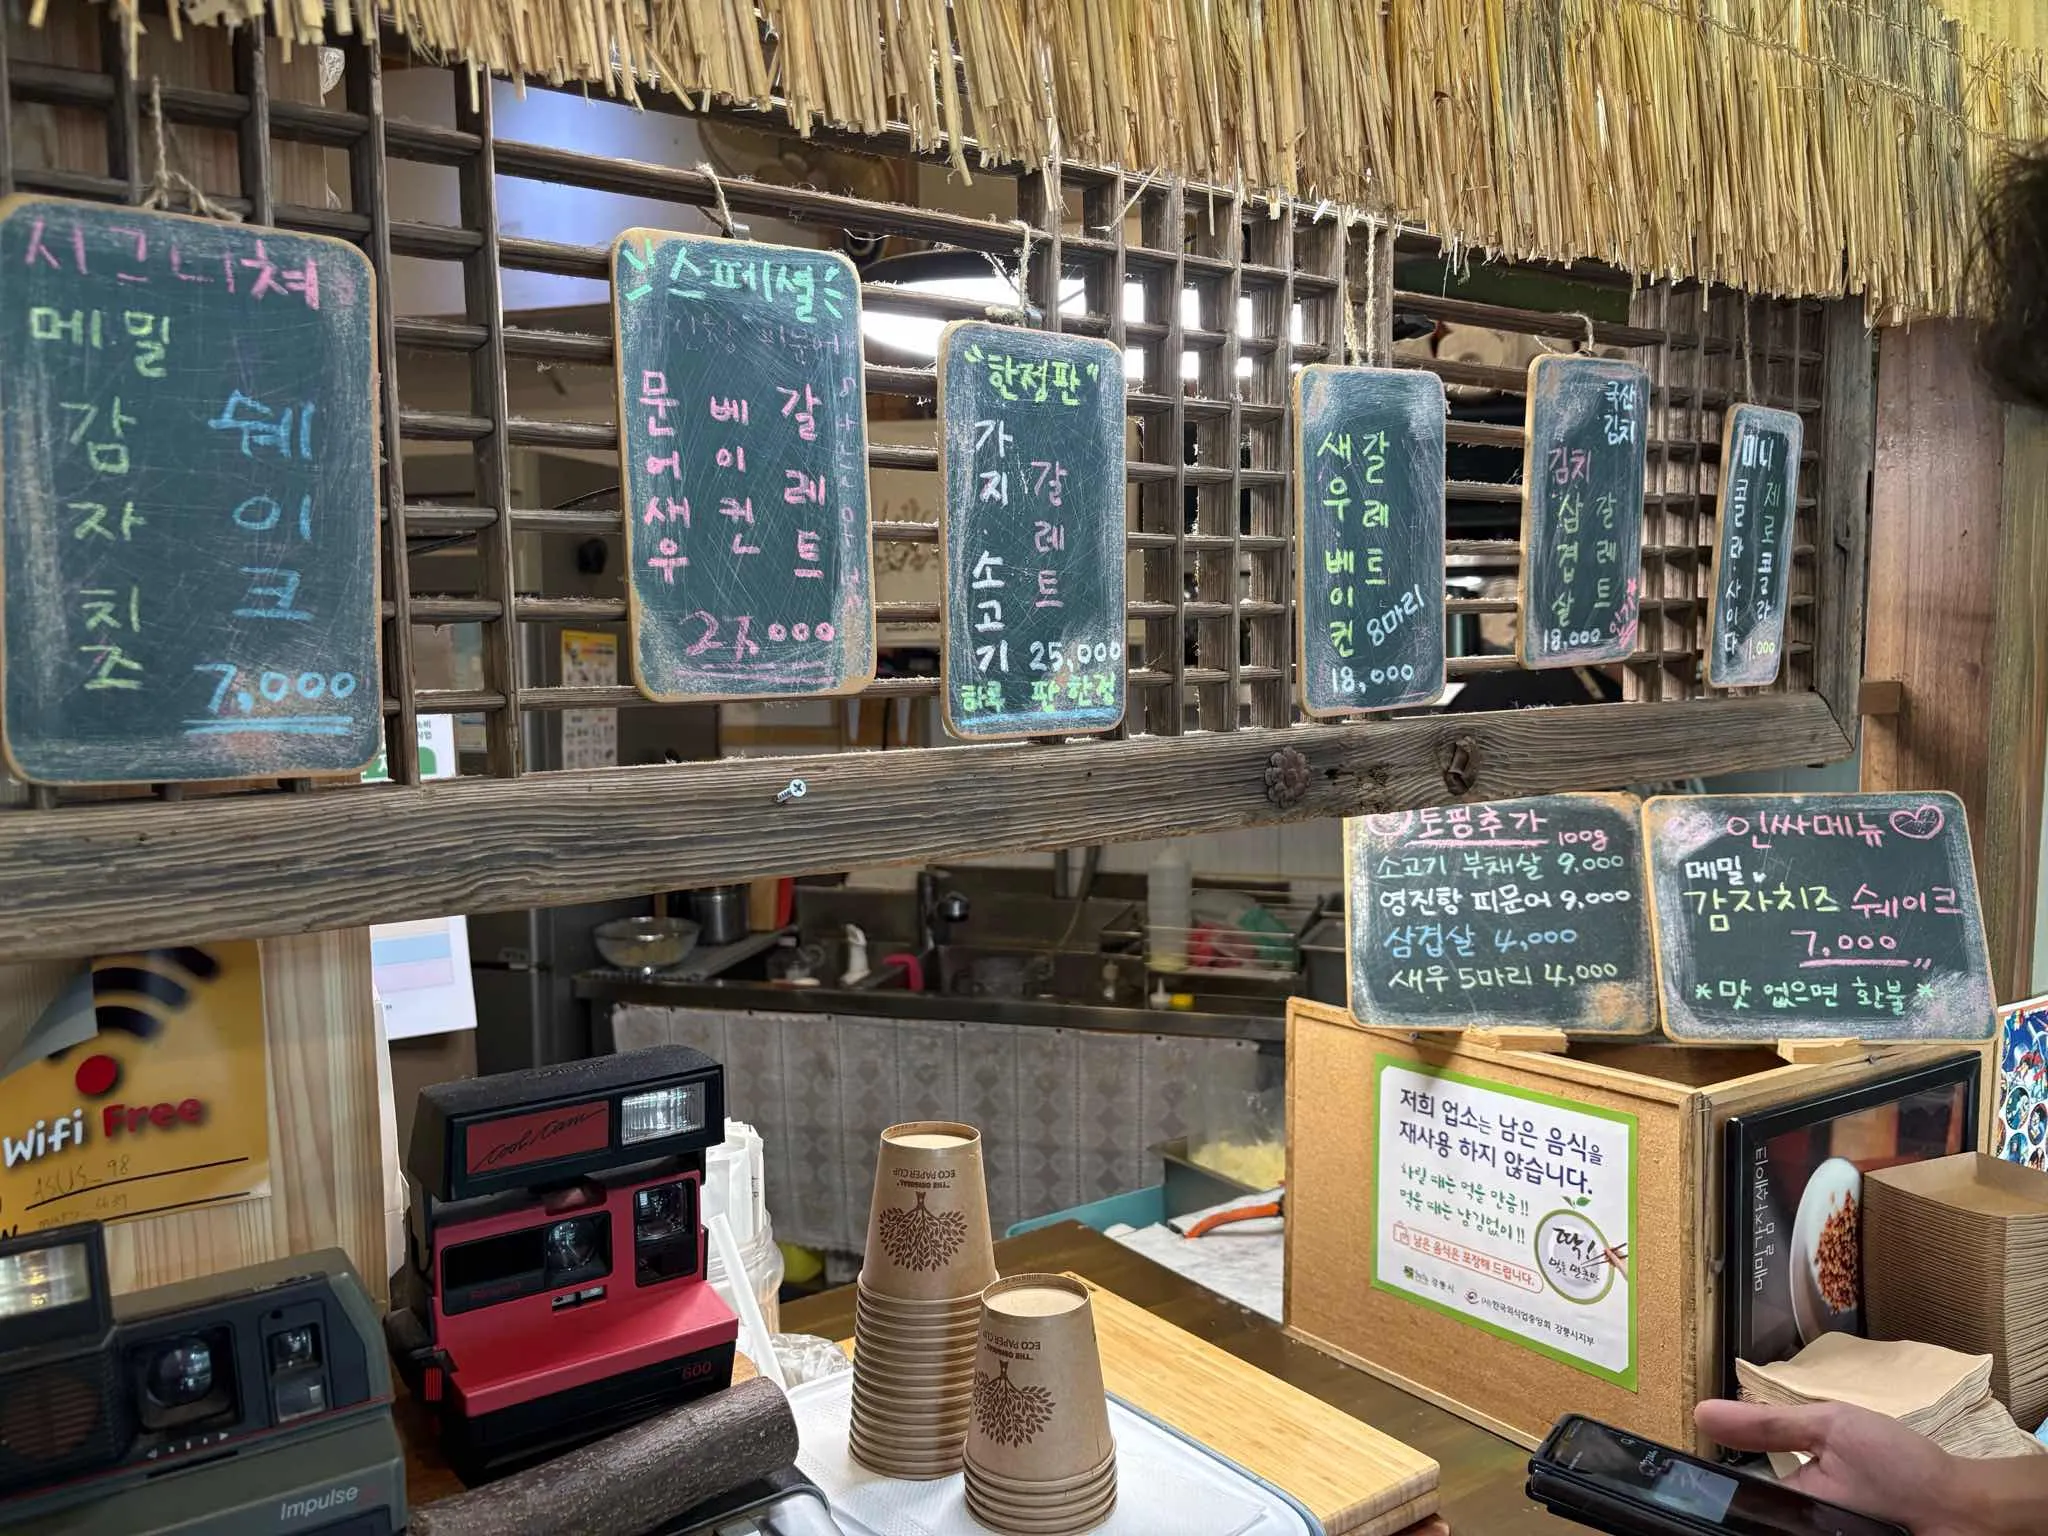 시그니쳐
메밀
감자치즈
쉐이크
7,000
스페셜
피문어
문어새우
베이컨
갈레트
"한정판"
가지·소고기
갈레트
25,000
하루 판 한정
새우·베이컨
갈레트
8마리
18,000
국산
김치
김치
삼겹살
갈레트
인기
18,000
미니
콜라·사이다
제로콜라
1,000
토핑추가 100g
소고기 부채살 9,000
영진항 피문어 9,000
삼겹살 4,000
새우 5마리 4,000
인싸메뉴
메밀
감자치즈 쉐이크
7,000
*맛 없으면 환불*
저희 업소는 남은 음식을
재사용 하지 않습니다.
차릴 때는 먹을 만큼!!
먹을 때는 남김없이!!
남은 음식은 포장해 드립니다.
딱!
먹을 만큼만
강릉시
(사)한국외식업중앙회 강릉시지부
메밀감자쉐이크
Wifi Free
ASUS_98
cool cam
600
Impulse
ECO PAPER CUP
"THE ORIGINAL"
ECO PAPER CUP
"THE ORIGINAL"